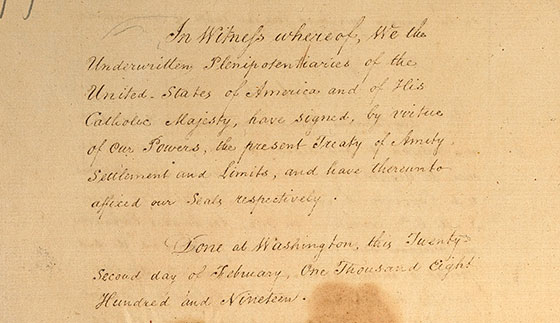 In Witness whereof, We the
Underwritten, Plenipotentiaries of the
United-States of America and of His
Catholic Majesty, have signed, by virtue
of Our Powers, the present Treaty of Amity,
Settlement and Limits, and have thereunto
affixed our Seals respectively.
Done at Washington, this Twenty-
Second day of February, One Thousand Eight
Hundred and Nineteen.